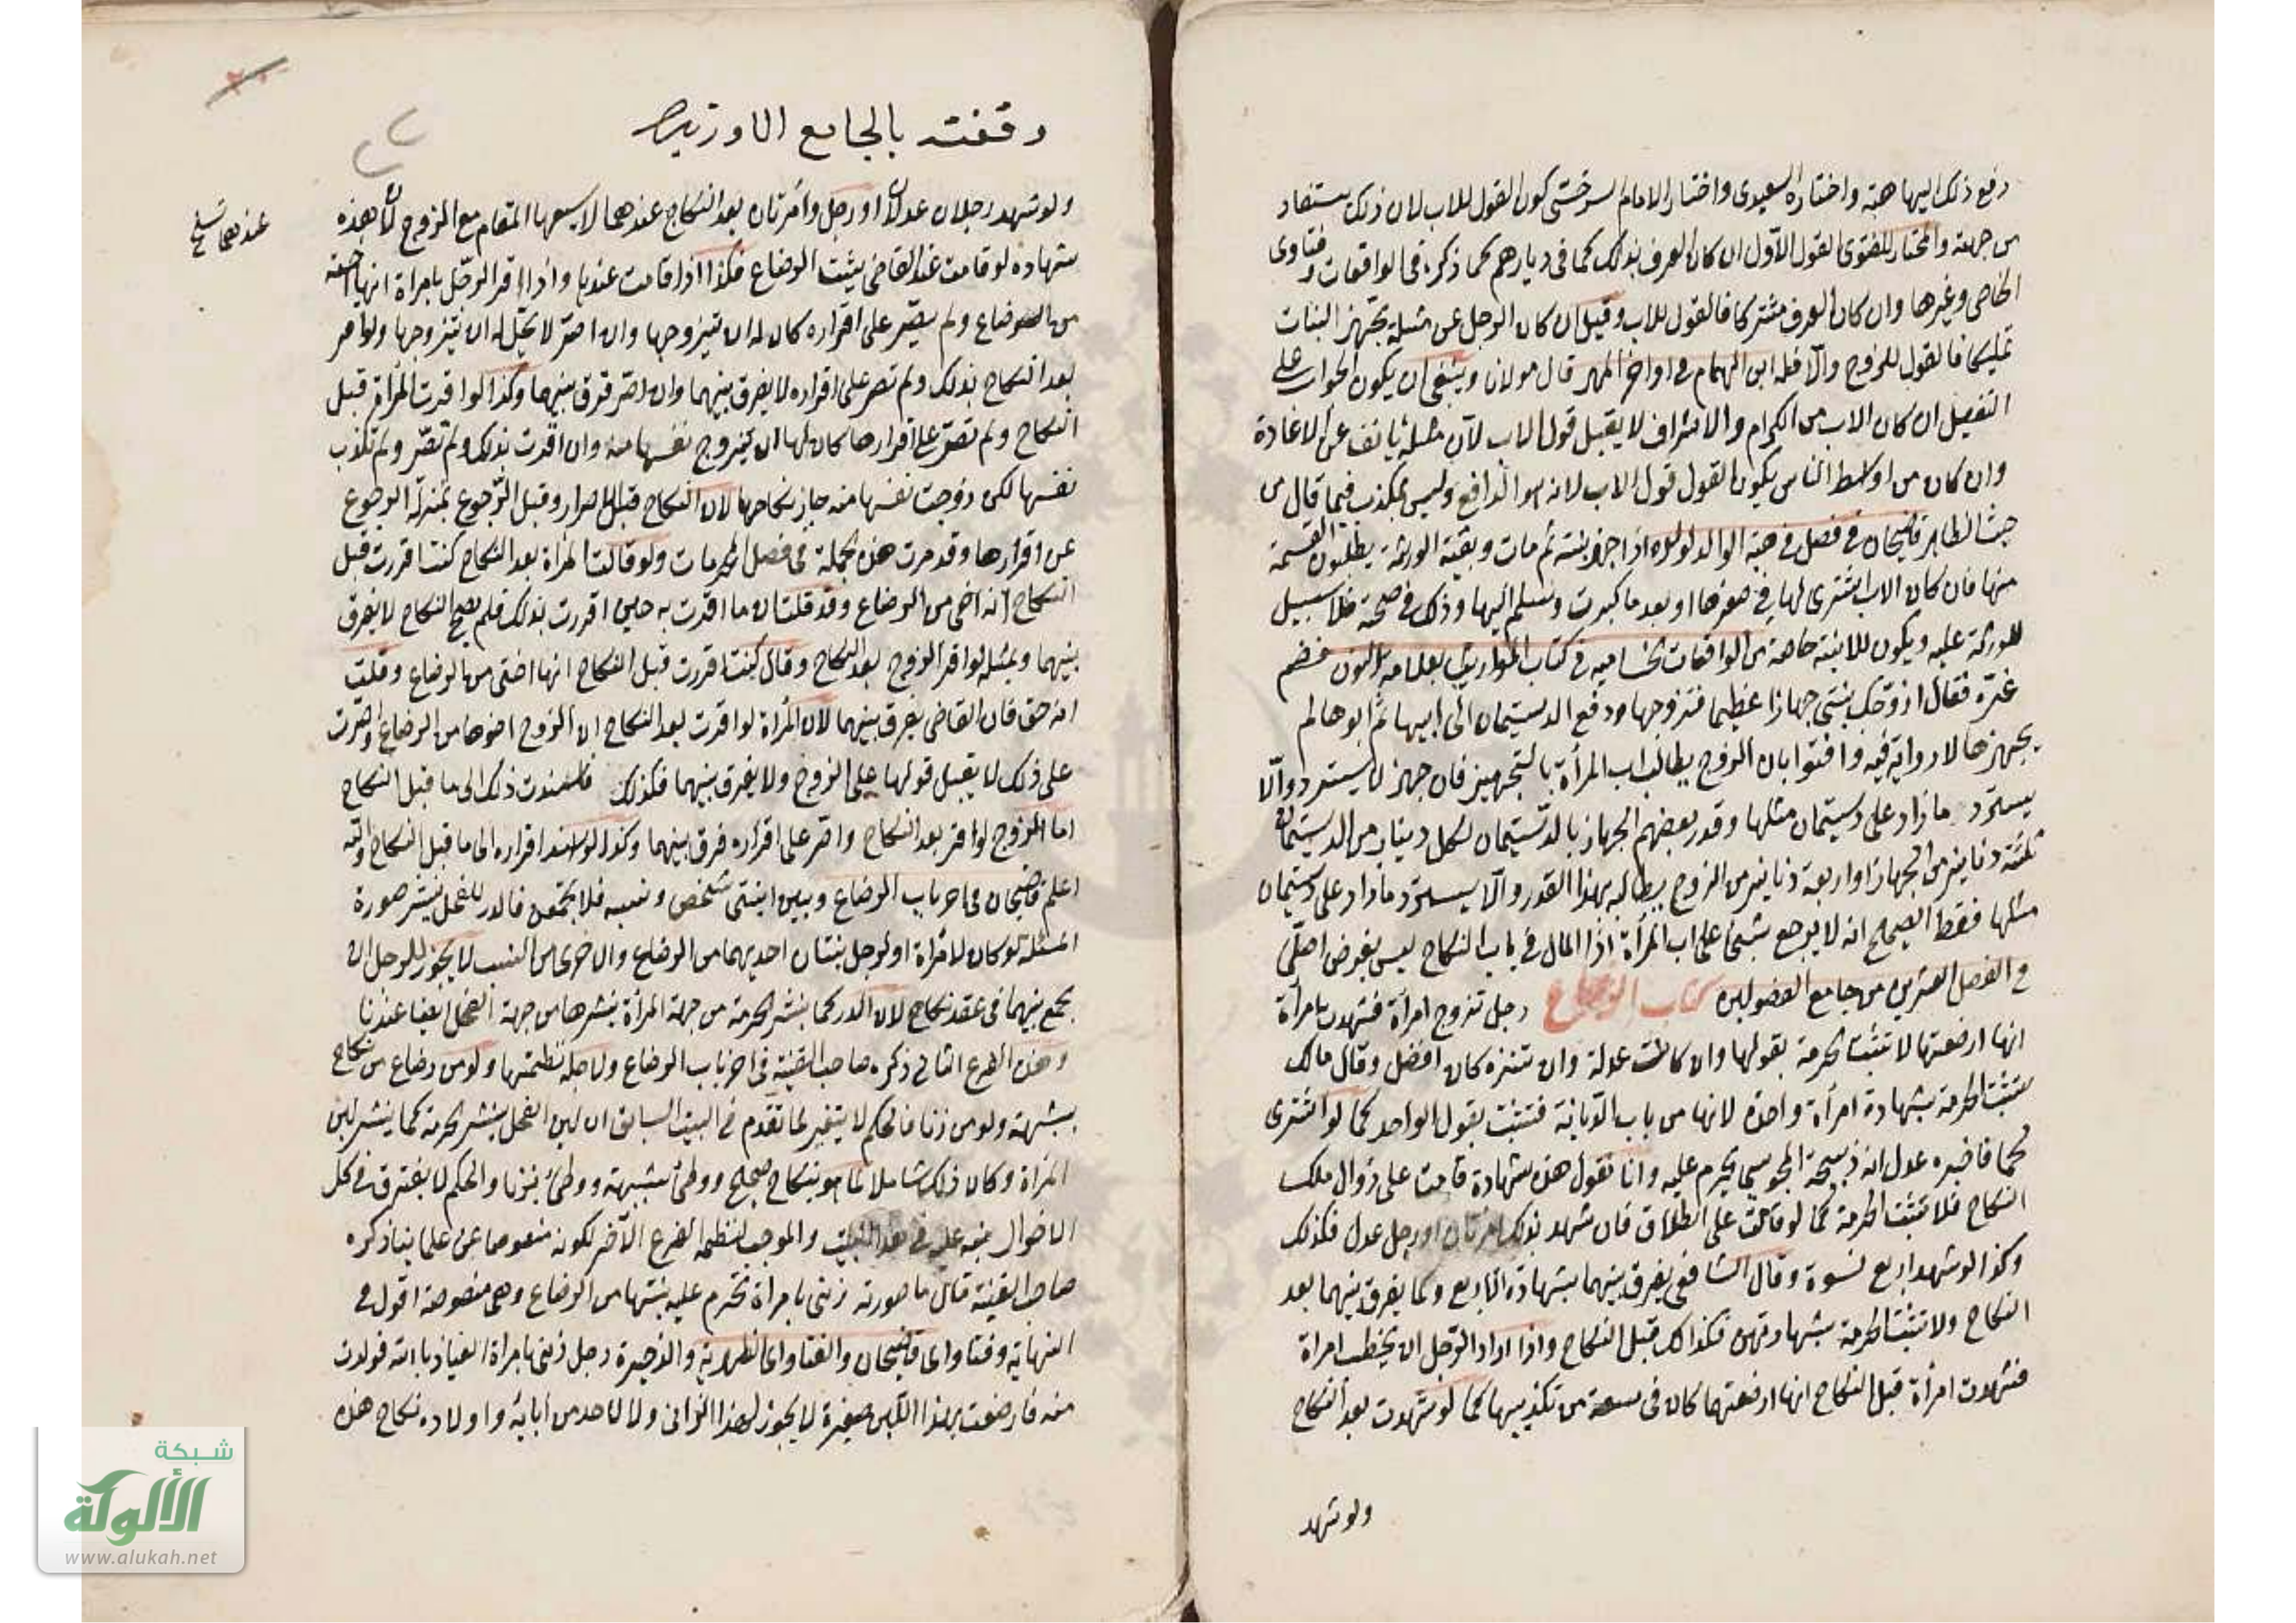 دفع ذلك اليها هبة واختاره السعيدى واختار الامام السرخسى كون القول للاب لان ذلك يستفاد
من جهته والمختار للفتوى القول الاول ان كان العرف بذلك كما فى ديارهم كما ذكره فى الواقعات وفتاوى
الخاصى وغيرها وان كان العرف مشتركا فالقول للاب وقيل ان كان الرجل عن مثله تجهز البنات
تمليكا فالقول للزوج والا فله ابن الهمام فى اواخر المهر قال مولانا وينبغى ان يكون الجواب على
التفصيل ان كان الاب من الكرام والاشراف لا يقبل قول الاب لان مثله يانف عن الاعادة
وان كان من اوساط الناس يكون القول قول الاب لانه هو الدافع وليس بمكذب فيما قال من
حيث الظاهر قاضيخان فى فصل فى هبة الوالد لولده اذا جهز بنته ثم مات وبقية الورثة يطلبون القسمة
منها فان كان الاب اشترى لها فى صغرها او بعد ما كبرت وسلم اليها وذلك فى صحته فلا سبيل
للورثة عليه ويكون للابنة خاصة من الواقعات الحسامية فى كتاب المواريث بعلامة النون
غيره فقال ازوجك بنتى جهازا عظيما فتزوجها ودفع الدستيمان الى ابيها ثم ابوها لم
يجهزها لا رواية فيه وافتوا بان الزوج يطالب اب المرأة بالتجهيز فان جهز لا يسترد والا
يسترد ما زاد على دستيمان مثلها وقدر بعضهم الجهاز بالدستيمان لكل دينار من الدستيمان
ثلثة دنانير من الجهاز او اربعة دنانير من الزوج يطالبه بهذا القدر والا يسترد ما زاد على دستيمان
مثلها فقط الصحيح انه لا يرجع بشئ على اب المرأة اذ المال فى باب النكاح ليس بغرض اصلى
فى الفصل العشرين من جامع الفصولين كتاب الرضاع رجل تزوج امرأة فشهدت امرأة
انها ارضعتها لا تثبت الحرمة بقولها وان كانت عدلة وان تنزه كان افضل وقال مالك
تثبت الحرمة بشهادة امرأة واحدة لانها من باب الديانة فتثبت بقول الواحد كما لو اشترى
لحما فاخبره عدل انه ذبيحة المجوسى يحرم عليه وانا نقول هذه شهادة قامت على زوال ملك
النكاح فلا تثبت الحرمة كما لو قامت على الطلاق فان شهد بذلك امرأتان او رجل عدل فكذلك
وكذا لو شهد اربع نسوة وقال الشافعى يفرق بينهما بشهادة الاربع وكما يفرق بينهما بعد
النكاح ولا تثبت الحرمة بشهادتهن فكذلك قبل النكاح واذا اراد الرجل ان يخطب امرأة
فشهدت امرأة قبل النكاح انها ارضعتهما كان فى سعة من تكذيبها كما لو شهدت بعد النكاح
ولو شهد
وقفت بالجامع
ولو شهد رجلان عدلان او رجل وامرأتان بعد النكاح عندهما لا يسعها المقام مع الزوج لان هذه
شهادة لو قامت عند القاضى يثبت الرضاع فكذا اذا قامت عندها واذا اقر الرجل بامراة انها اخته
من الرضاع ولم يصر على اقراره كان له ان يتزوجها وان اصر لا يحل له ان يتزوجها ولو اقر
بعد النكاح بذلك ولم يصر على اقراره لا يفرق بينهما وان اصر فرق بينهما وكذا لو اقرت المرأة قبل
النكاح ولم تصر على اقرارها كان لها ان تزوج نفسها منه وان اقرت بذلك ولم تصر ولم تكذب
نفسها لكن زوجت نفسها منه جاز نكاحها لان النكاح قبل الاصرار وقبل الرجوع بمنزلة الرجوع
عن اقرارها وقد مرت هذه الجملة فى فصل المحرمات ولو قالت المرأة بعد النكاح كنت اقررت قبل
النكاح انه اخى من الرضاع وقد قلت ان ما اقررت به حين اقررت بذلك فلم يصح النكاح لا يفرق
بينهما وبمثله لو اقر الزوج بعد النكاح وقال كنت اقررت قبل النكاح انها اختى من الرضاع وقلت
انه حق فان القاضى يفرق بينهما لان المرأة لو اقرت بعد النكاح ان الزوج اخوها من الرضاع واصرت
على ذلك لا يقبل قولها على الزوج ولا يفرق بينهما فكذلك ذلك الى ما قبل النكاح
اما الزوج لو اقر بعد النكاح واصر على اقراره فرق بينهما وكذا لو اسند اقراره الى ما قبل النكاح والله
اعلم قاضيخان فى اخر باب الرضاع وبين ابنتى شخص ونسبه فلا تجمعن فالدر للفحل ينشر صورة
المسئلة لو كان لامرأة او لرجل بنتان احديهما من الرضاع والاخرى من النسب لا يجوز للرجل ان
يجمع بينهما فى عقد نكاح لان الدر كما ينشر الحرمة من جهة المرأة ينشرها من جهة الفحل ايضا عندنا
وهذه الفرع الثانى ذكره صاحب القنية فى اخر باب الرضاع ولاجله نظمتها ولو من رضاع من نكاح
بشبهة ولو من زنا فالحكم لا يتغير لما تقدم فى البيت السابق ان لبن الفحل ينشر الحرمة كما ينشر لبن
المرأة وكان ذلك شاملا لما هو بنكاح صحيح ووطئ بشبهة ووطئ بزنا والحكم لا يفترق فى كل
الاحوال نبه عليه فى هذا البيت والموجب لنظم الفرع الآخر لكونه منصوصا عن علمائنا ذكره
صاحب القنية قال ما صورته زنى بامراة تحرم عليه بنتها من الرضاع وهى منصوصة اقول فى
النهاية وفتاوى قاضيخان والفتاوى الظهيرية والذخيرة رجل زنى بامرأة العياذ بالله فولدت
منه فارضعت بهذا اللبن صغيرة لا يجوز لهذا الزانى ولا لاحد من ابائه واولاده نكاح هذه
عندهما
شبكة
الألوكة
www.alukah.net